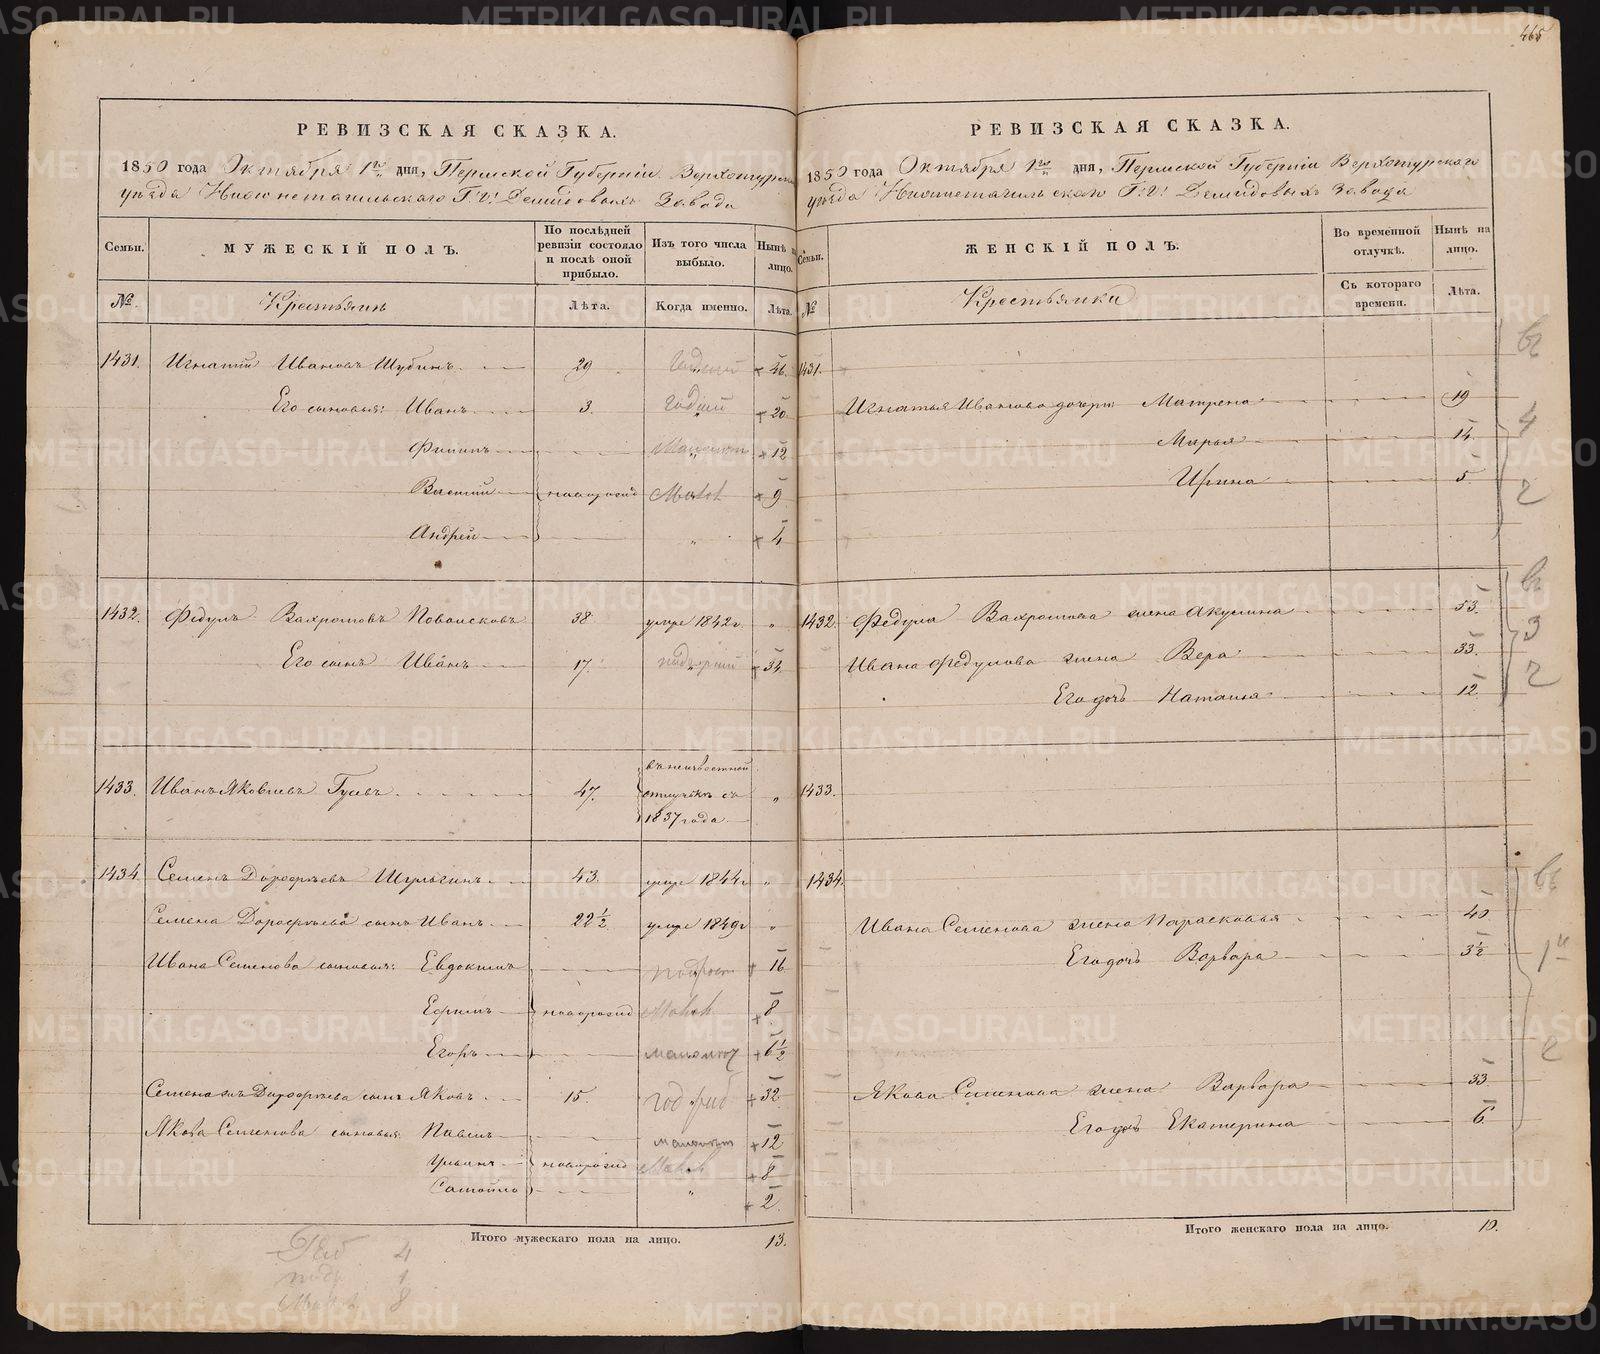 465
РЕВИЗСКАЯ СКАЗКА.
1850 года Октября 1го дня, Пермской Губернiи Верхотурскаго
уѣзда Нижнетагильскаго Г.г. Демидовыхъ Завода
Семьи. МУЖЕСКIЙ ПОЛЪ. По послѣдней ревизiи состояло и послѣ оной прибыло. Изъ того числа выбыло. Нынѣ на лицо.
№ Крестьянъ Лѣта. Когда именно. Лѣта.
1431. Игнатiй Ивановъ Шубинъ 29 Годный 46.
Его сыновья: Иванъ 3. Годный 20
Филипъ Малолѣт 12
Василiй новорожд 9
Андрей " 4
1432. Федулъ Вахромовъ 38 умре 1842г "
Его сынъ Иванъ 17. 34
1433. Иванъ Яковлевъ Гусевъ 47. въ неизвѣстной отлучкѣ съ 1837 года "
1434. Семенъ Дорофѣевъ Шульгинъ 43. умре 1844г "
Семена Дорофѣева сынъ Иванъ 22½ умре 1849г "
Ивана Семенова сыновья: Евдокимъ 16
Ефимъ новорожд 8
Егоръ 6½
Семена Дорофѣева сынъ Яковъ 15. 32
Якова Семенова сыновья: Павелъ 12
новорожд 8
Самойло " 2
Итого мужескаго пола на лицо. 13.
4
1
8
РЕВИЗСКАЯ СКАЗКА.
1850 года Октября 1го дня, Пермской Губернiи Верхотурскаго
уѣзда Нижнетагильскаго Г.г. Демидовыхъ Завода
Семьи. ЖЕНСКIЙ ПОЛЪ. Во временной отлучкѣ. Нынѣ на лицо.
№ Крестьянки Съ котораго времени. Лѣта.
1431.
Игнатья Иванова дочери: Матрена 19
Марья 14
Ирина 5
1432. Федула Вахромова жена Акулина 53.
Ивана Федулова жена Вера 33.
Его дочь Наталья 12
1433.
1434.
Ивана Семенова жена Парасковья 40
Его дочь Варвара 3½
Якова Семенова жена Варвара 33
Его дочь Екатерина 6
Итого женскаго пола на лицо. 10.
METRIKI.GASO-URAL.RU